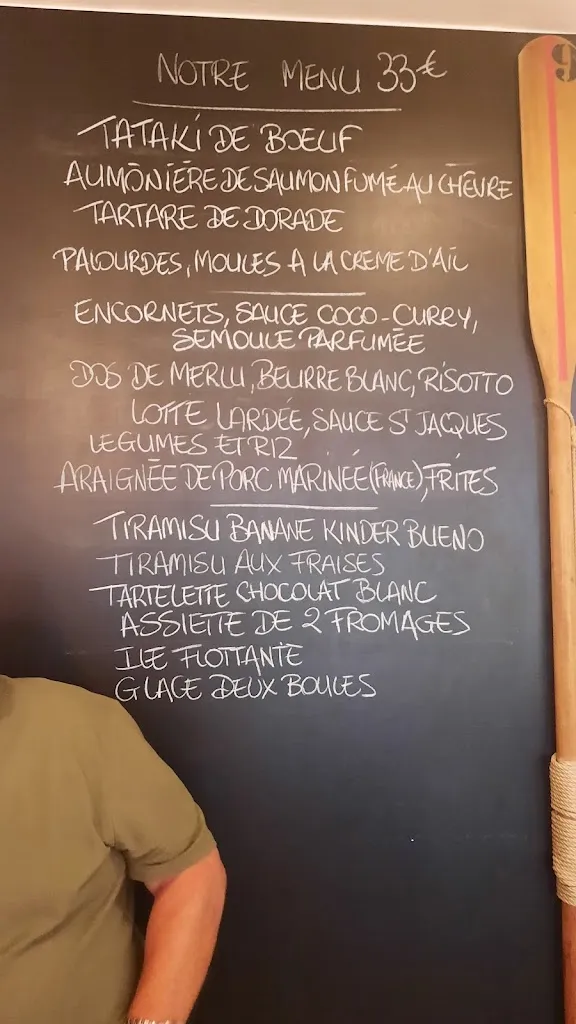 NOTRE MENU 33€
TATAKI DE BOEUF
AUMÔNIÈRE DE SAUMON FUMÉ AU CHÈVRE
TARTARE DE DORADE
PALOURDES, MOULES A LA CREME D'AIL
ENCORNETS, SAUCE COCO-CURRY,
SEMOULE PARFUMÉE
DOS DE MERLU, BEURRE BLANC, RISOTTO
LOTTE LARDÉE, SAUCE ST JACQUES
LEGUMES ET RIZ
ARAIGNÉE DE PORC MARINÉE (FRANCE), FRITES
TIRAMISU BANANE KINDER BUENO
TIRAMISU AUX FRAISES
TARTELETTE CHOCOLAT BLANC
ASSIETTE DE 2 FROMAGES
ILE FLOTTANTE
GLACE DEUX BOULES
9